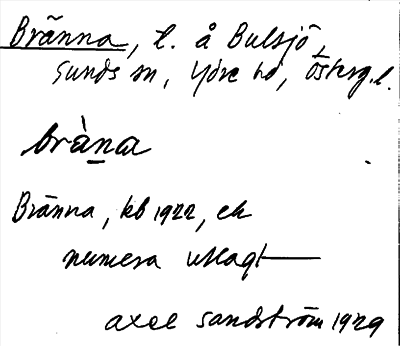 Bränna, t. å Bulsjö,
Sunds sn, Ydre hd, Östergl.
bràna
Bränna, kb 1922, ek
numera utlagt
Axel Sandström 1929